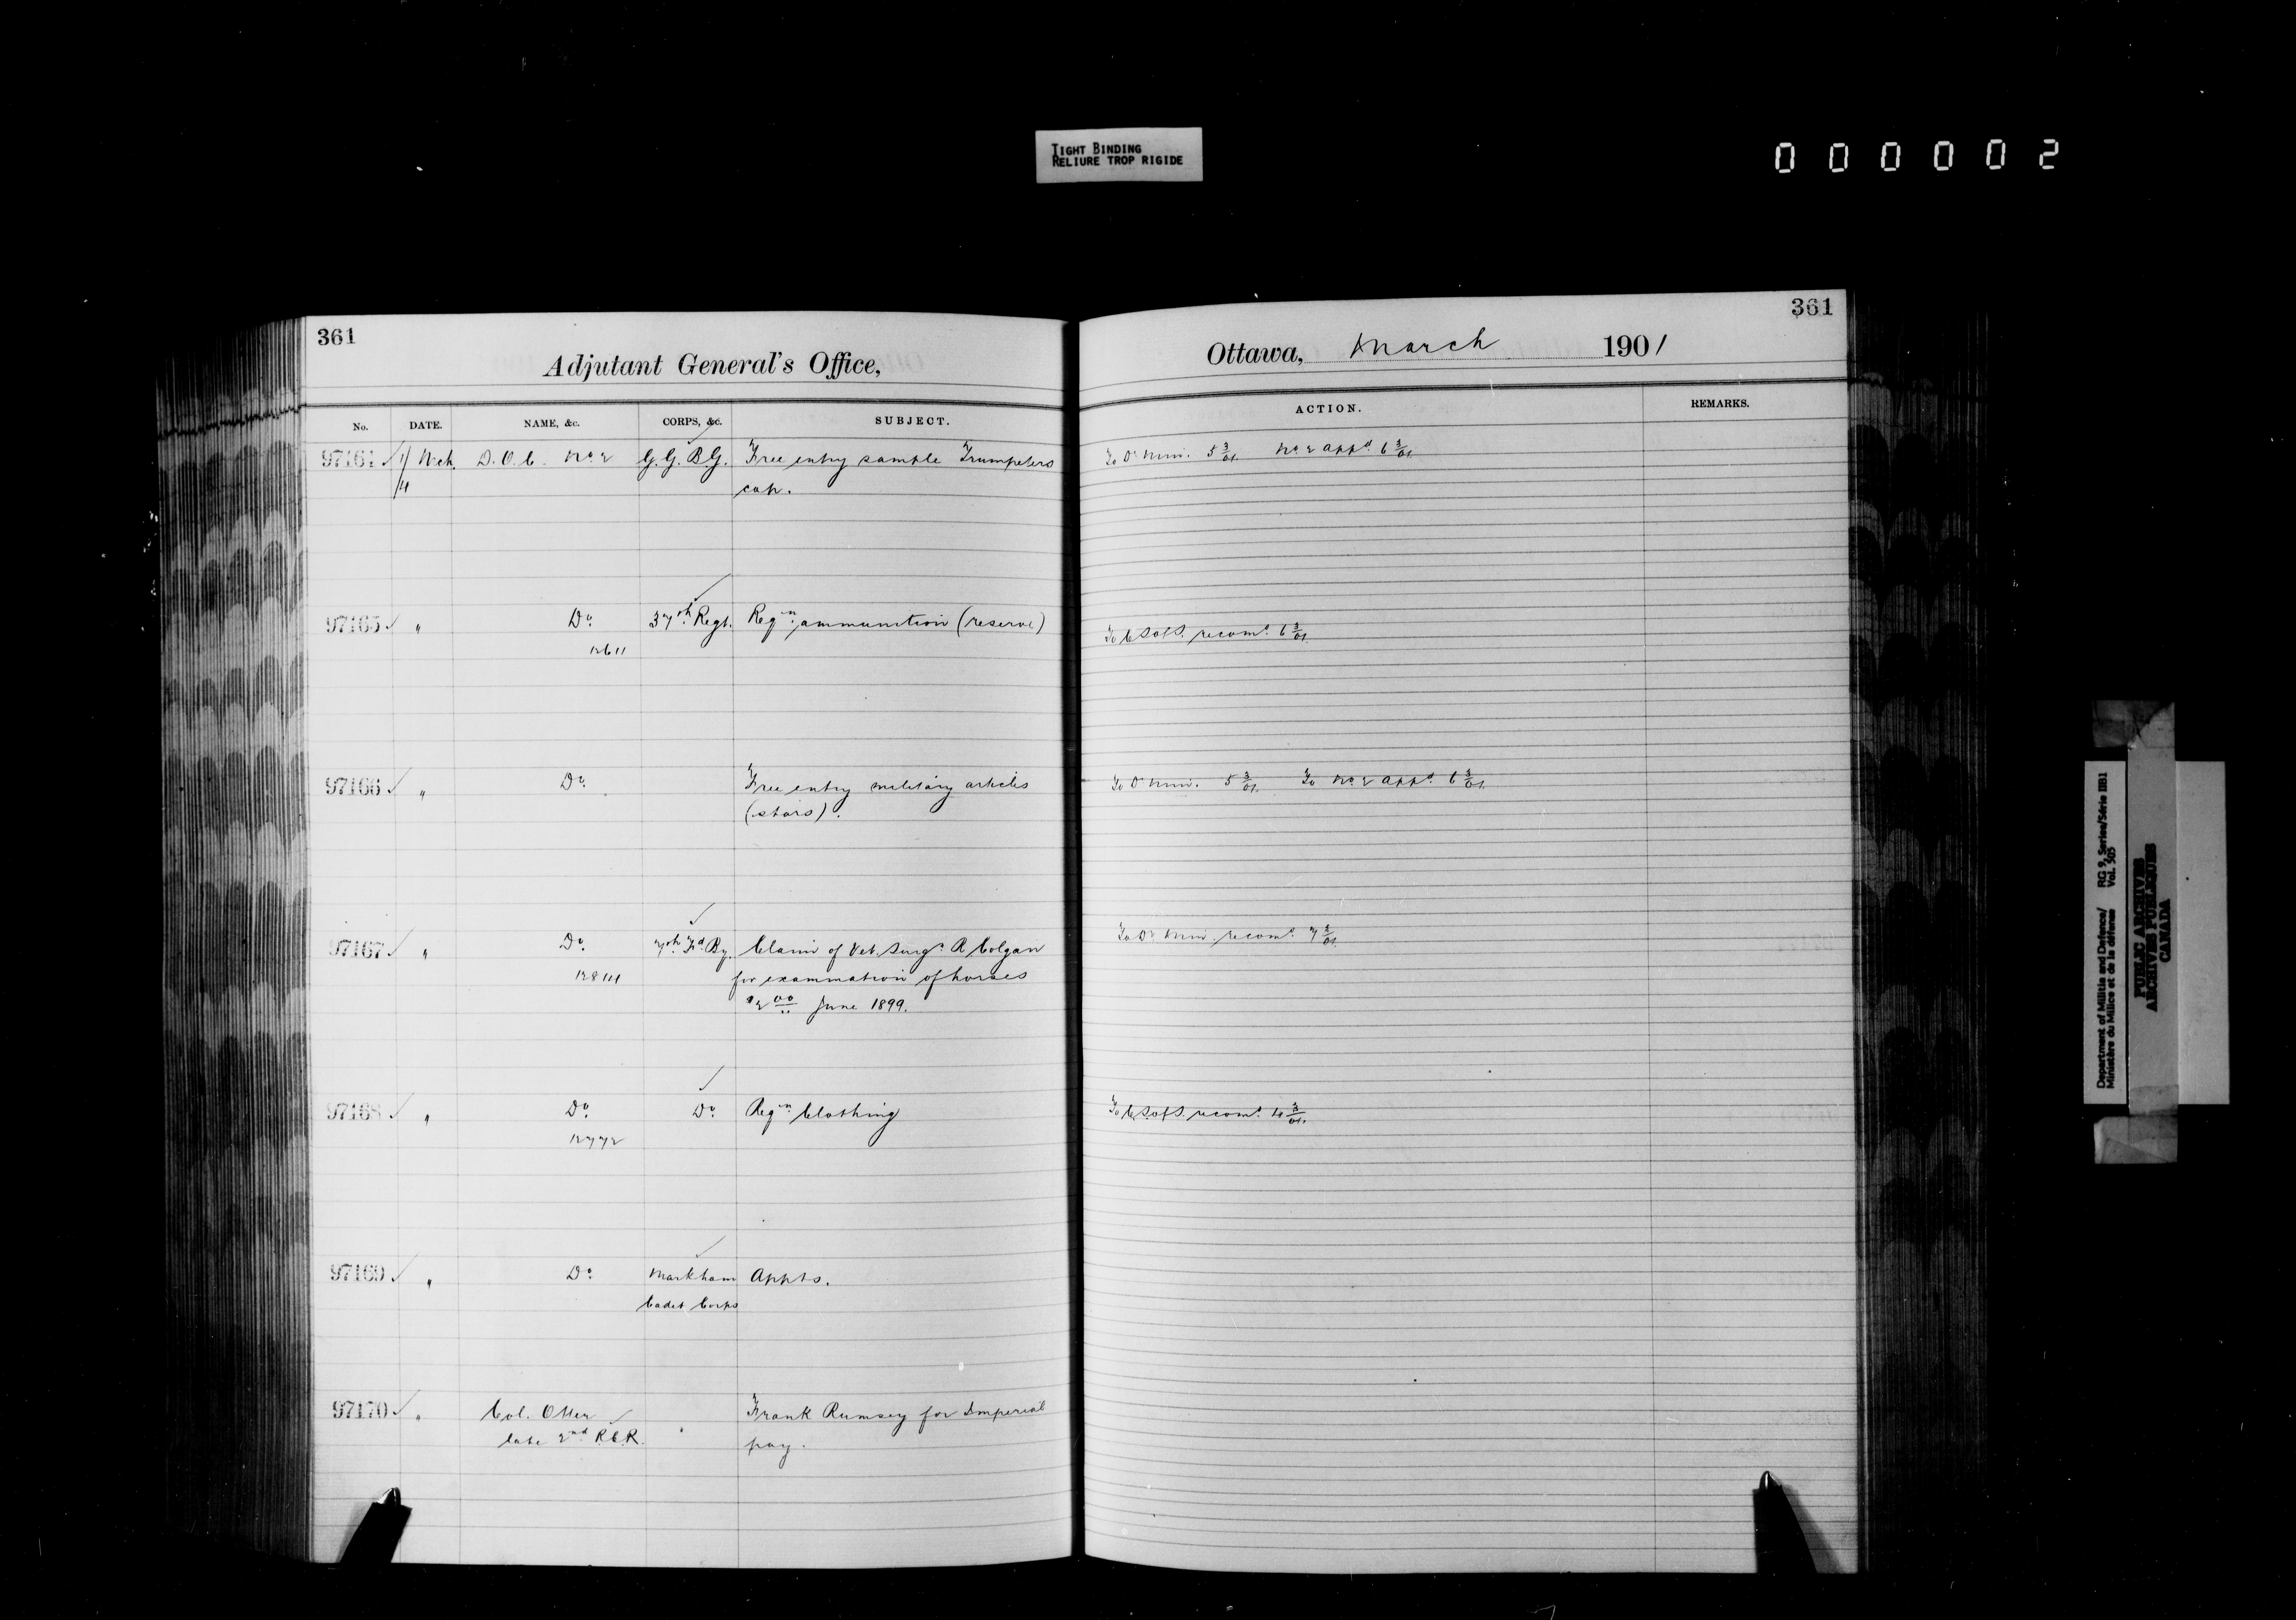 TIGHT BINDING
RELIURE TROP RIGIDE
000002
361
Adjutant General's Office,
No. DATE. NAME, &c. CORPS, &c. SUBJECT.
97164 1/ Mch D.O.C. No. 2 G.G.B.G. Free entry sample Trumpeters
4 cap.
97165 " Do. 37th Regt. Reqn. ammunition (reserve)
12611
97166 " Do. Free entry military articles
(stars).
97167 " Do. 7th Fd By. Claim of Vet. Surgn. R Colgan
for examination of horses
$2.00 June 1899.
97168 " Do. Do. Reqn. Clothing
12772
97169 " Do. Markham Appts.
Cadet Corps
97170 " Col. Otter Frank Rumsey for Imperial
late 2nd R.C.R. pay.
361
Ottawa, March 1901
ACTION. REMARKS.
To Dr. Min. 5 3/01. No. 2 appd. 6 3/01.
To C.S. of S. recomd. 6 3/01.
To Dr. Min. 5 3/01. To No. 2 appd. 6 3/01.
To Dr. Min. recomd. 7 3/01.
To C.S. of S. recomd. 4 3/01.
Department of Militia and Defence/ RG 9, Series/Série IIB1
Ministère du Milice et de la défense Vol. 505
PUBLIC ARCHIVES
ARCHIVES PUBLIQUES
CANADA